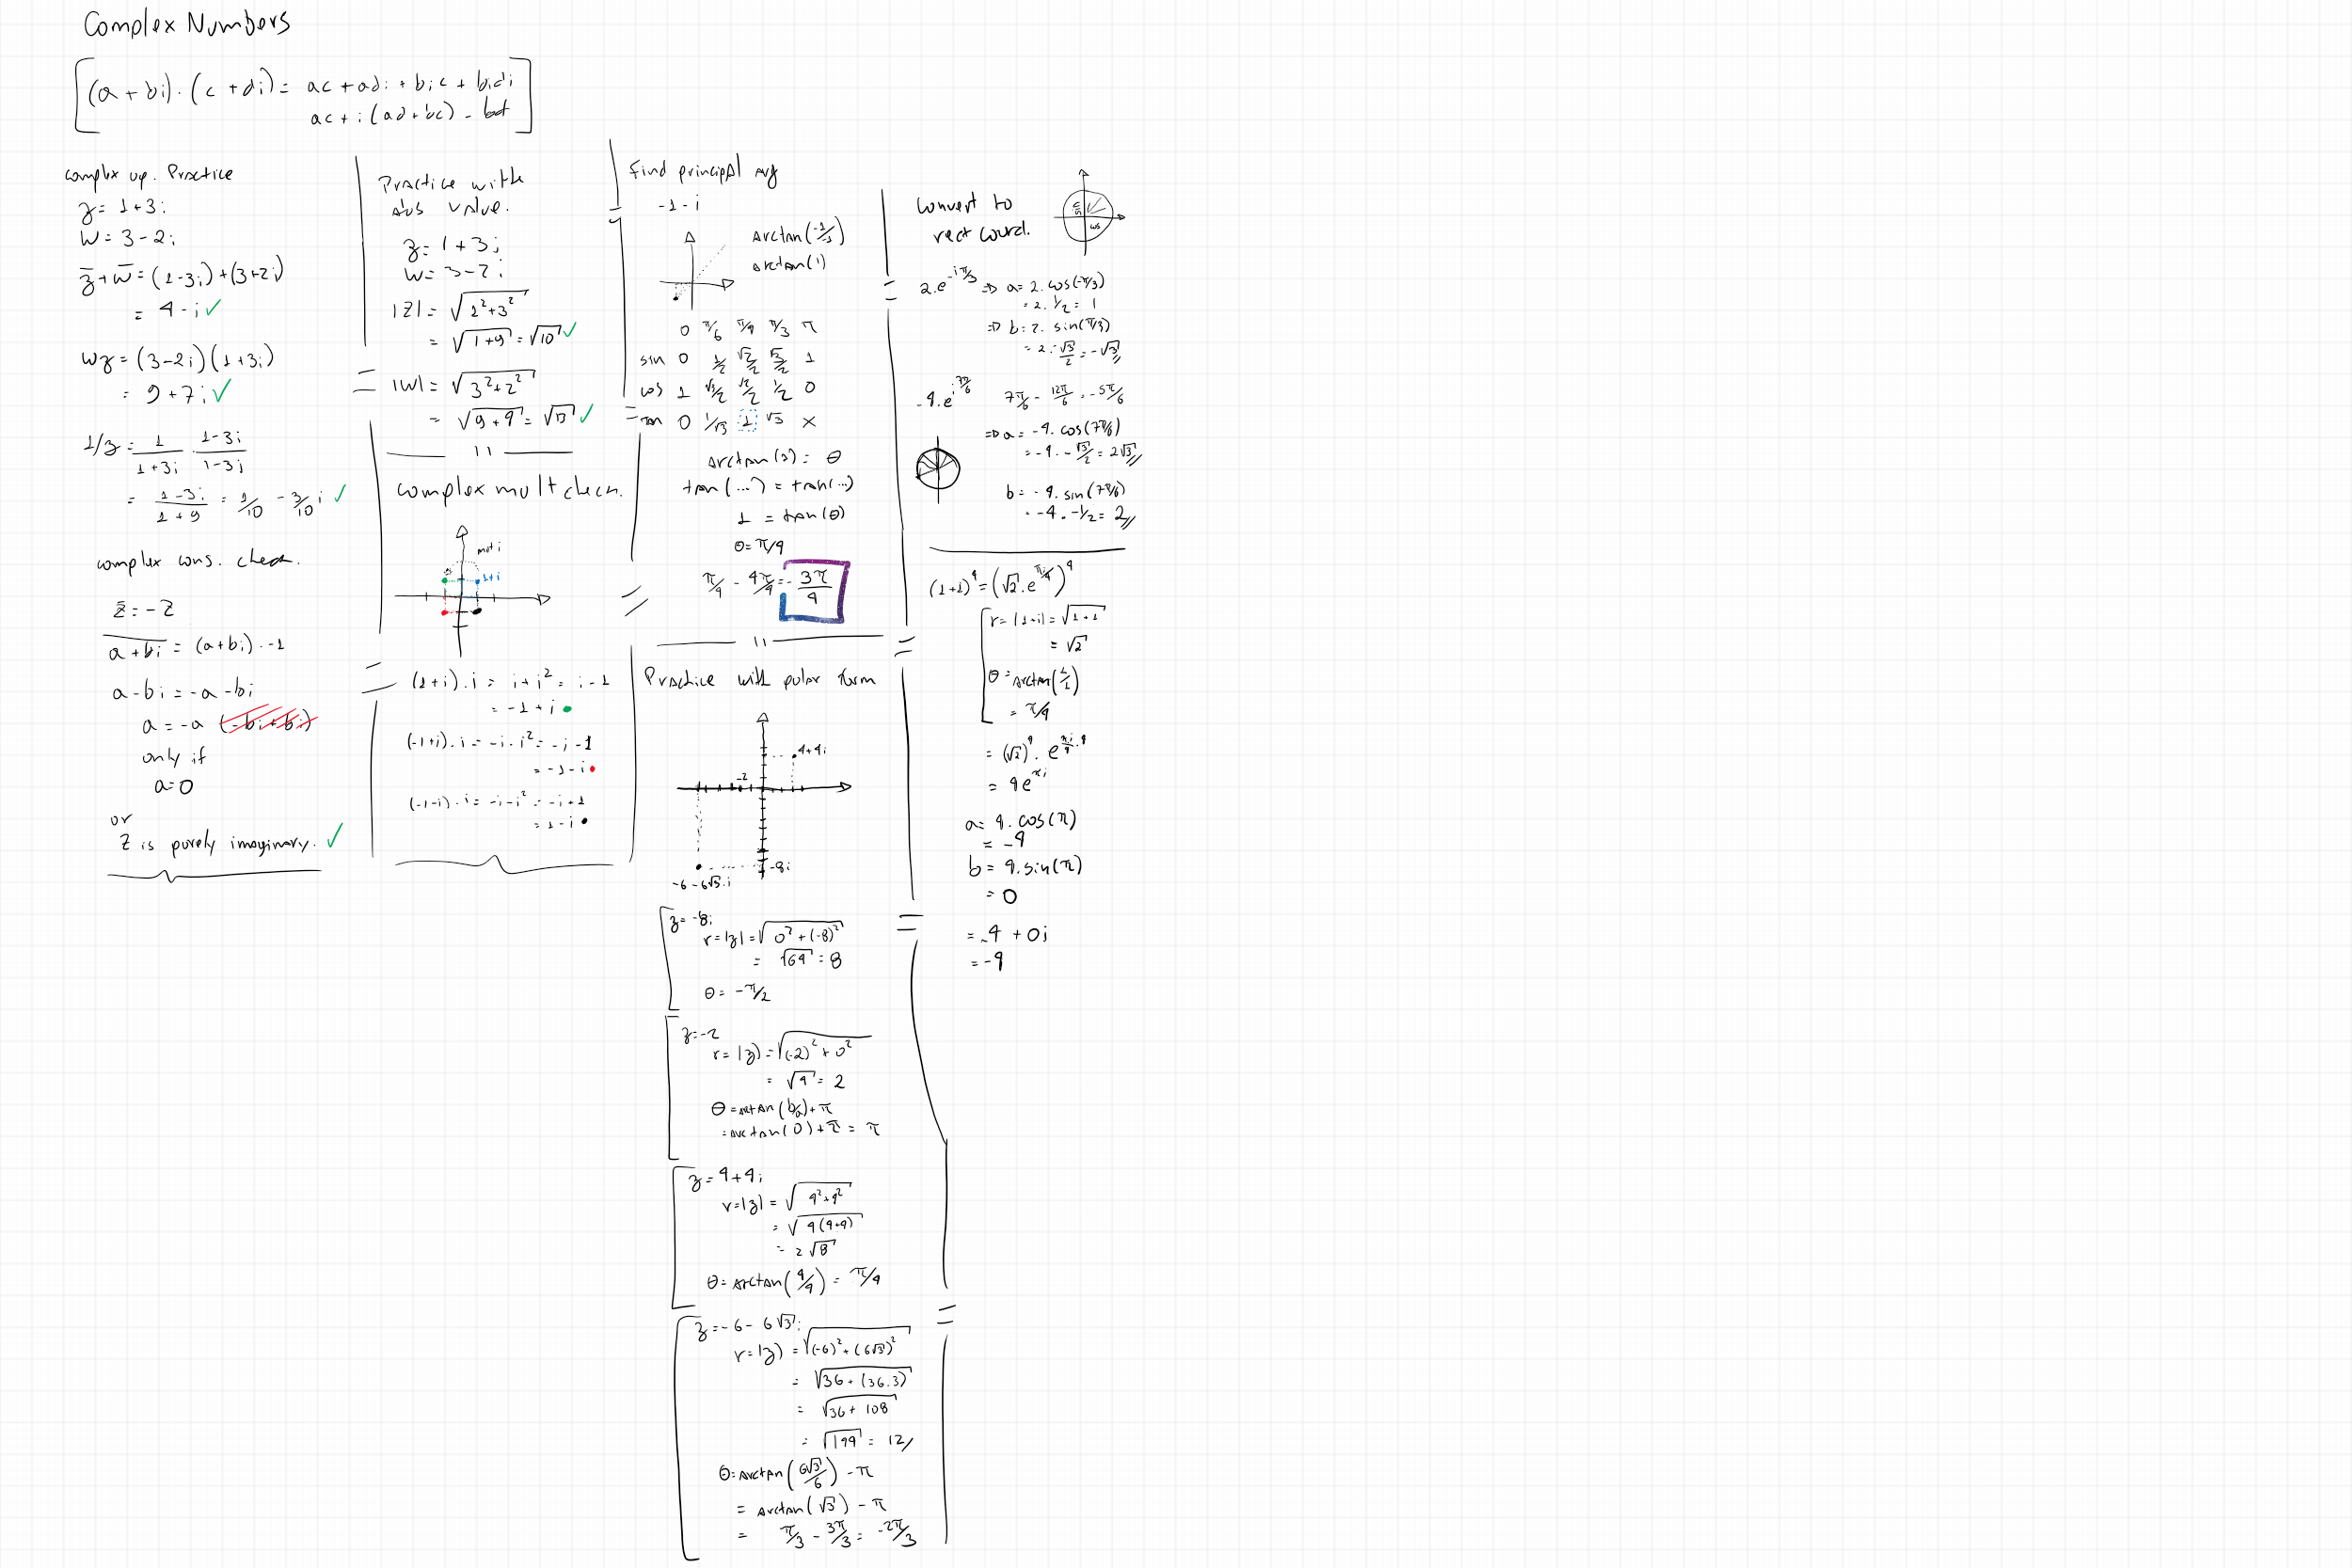 Complex Numbers
(a + bi) · (c + di) = ac + adi + bic + bidi
ac + i(ad + bc) - bd
complex op. Practice
z = 1+3i
w = 3-2i
z̄ + w̄ = (1-3i) + (3+2i)
= 4 - i ✓
wz = (3-2i)(1+3i)
= 9 + 7i ✓
1/z = 1/(1+3i) · (1-3i)/(1-3i)
= (1-3i)/(1+9) = 1/10 - 3/10 i ✓
complex cons. check.
z̄ = -z
a+bi = (a+bi) · -1
a - bi = -a - bi
a = -a (-bi+bi)
only if
a=0
or
z is purely imaginary. ✓
Practice with
abs value.
z = 1 + 3i
w = 3 - 2i
|z| = √(1²+3²)
= √(1+9) = √10 ✓
|w| = √(3²+2²)
= √(9+4) = √13 ✓
complex mult check.
mult i
1+i
(1+i).i = i+i² = i-1
= -1+i
(-1+i).i = -i+i² = -i-1
= -1-i
(-1-i).i = -i-i² = -i+1
= 1-i
Find principal arg
-1 - i
arctan(-1/-1)
arctan(1)
0 π/6 π/4 π/3 π
sin 0 1/2 √2/2 √3/2 1
cos 1 √3/2 √2/2 1/2 0
tan 0 1/√3 1 √3 x
arctan(1) = θ
tan(...) = tan(...)
1 = tan(θ)
θ = π/4
π/4 - 4π/4 = -3π/4
Practice with polar form
4+4i
-2
-8i
-6-6√3.i
z = -8i
r = |z| = √(0² + (-8)²)
= √64 = 8
θ = -π/2
z = -2
r = |z| = √((-2)² + 0²)
= √4 = 2
θ = arctan(b/a) + π
= arctan(0) + π = π
z = 4+4i
r = |z| = √(4²+4²)
= √(4(4+4))
= 2√8
θ = arctan(4/4) = π/4
z = -6 - 6√3i
r = |z| = √((-6)² + (6√3)²)
= √(36 + (36.3))
= √(36 + 108)
= √144 = 12
θ = arctan(6√3/6) - π
= arctan(√3) - π
= π/3 - 3π/3 = -2π/3
Convert to
rect coord.
sin
cos
2.e^(-iπ/3) ⇒ a = 2. cos(-π/3)
= 2. 1/2 = 1
⇒ b = 2. sin(π/3)
= 2. -√3/2 = -√3
-4.e^(i7π/6) 7π/6 - 12π/6 = -5π/6
⇒ a = -4. cos(7π/6)
= -4. -√3/2 = 2√3
b = -4. sin(7π/6)
= -4. -1/2 = 2
(1+i)⁴ = (√2.e^(πi/4))⁴
r = |1+i| = √(1+1)
= √2
θ = arctan(1/1)
= π/4
= (√2)⁴. e^(πi/4 .4)
= 4e^(πi)
a = 4. cos(π)
= -4
b = 4.sin(π)
= 0
= -4 + 0i
= -4